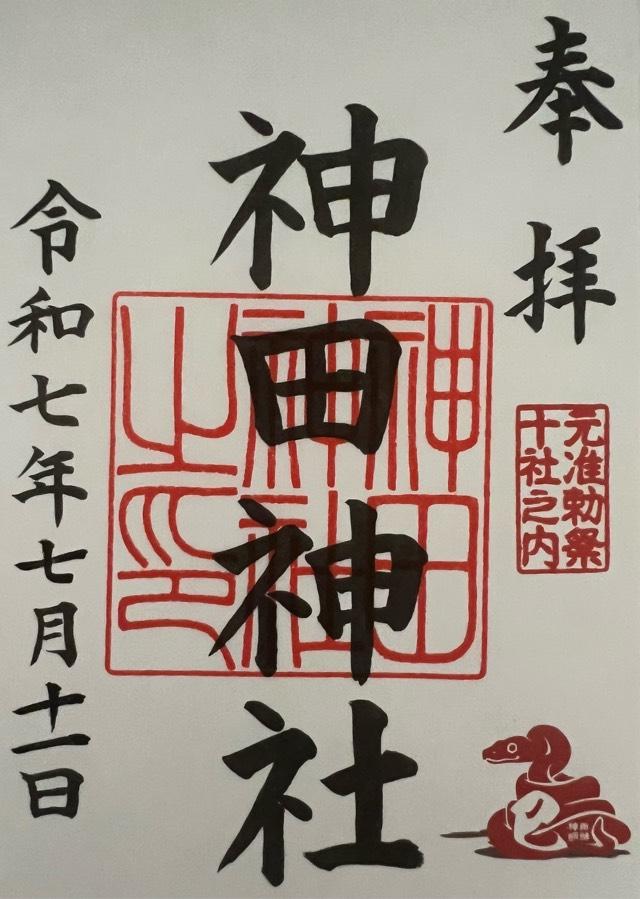 奉拝
元准勅祭
十社之内
神田神社
神田
神社
之印
令和七年七月十一日
巳